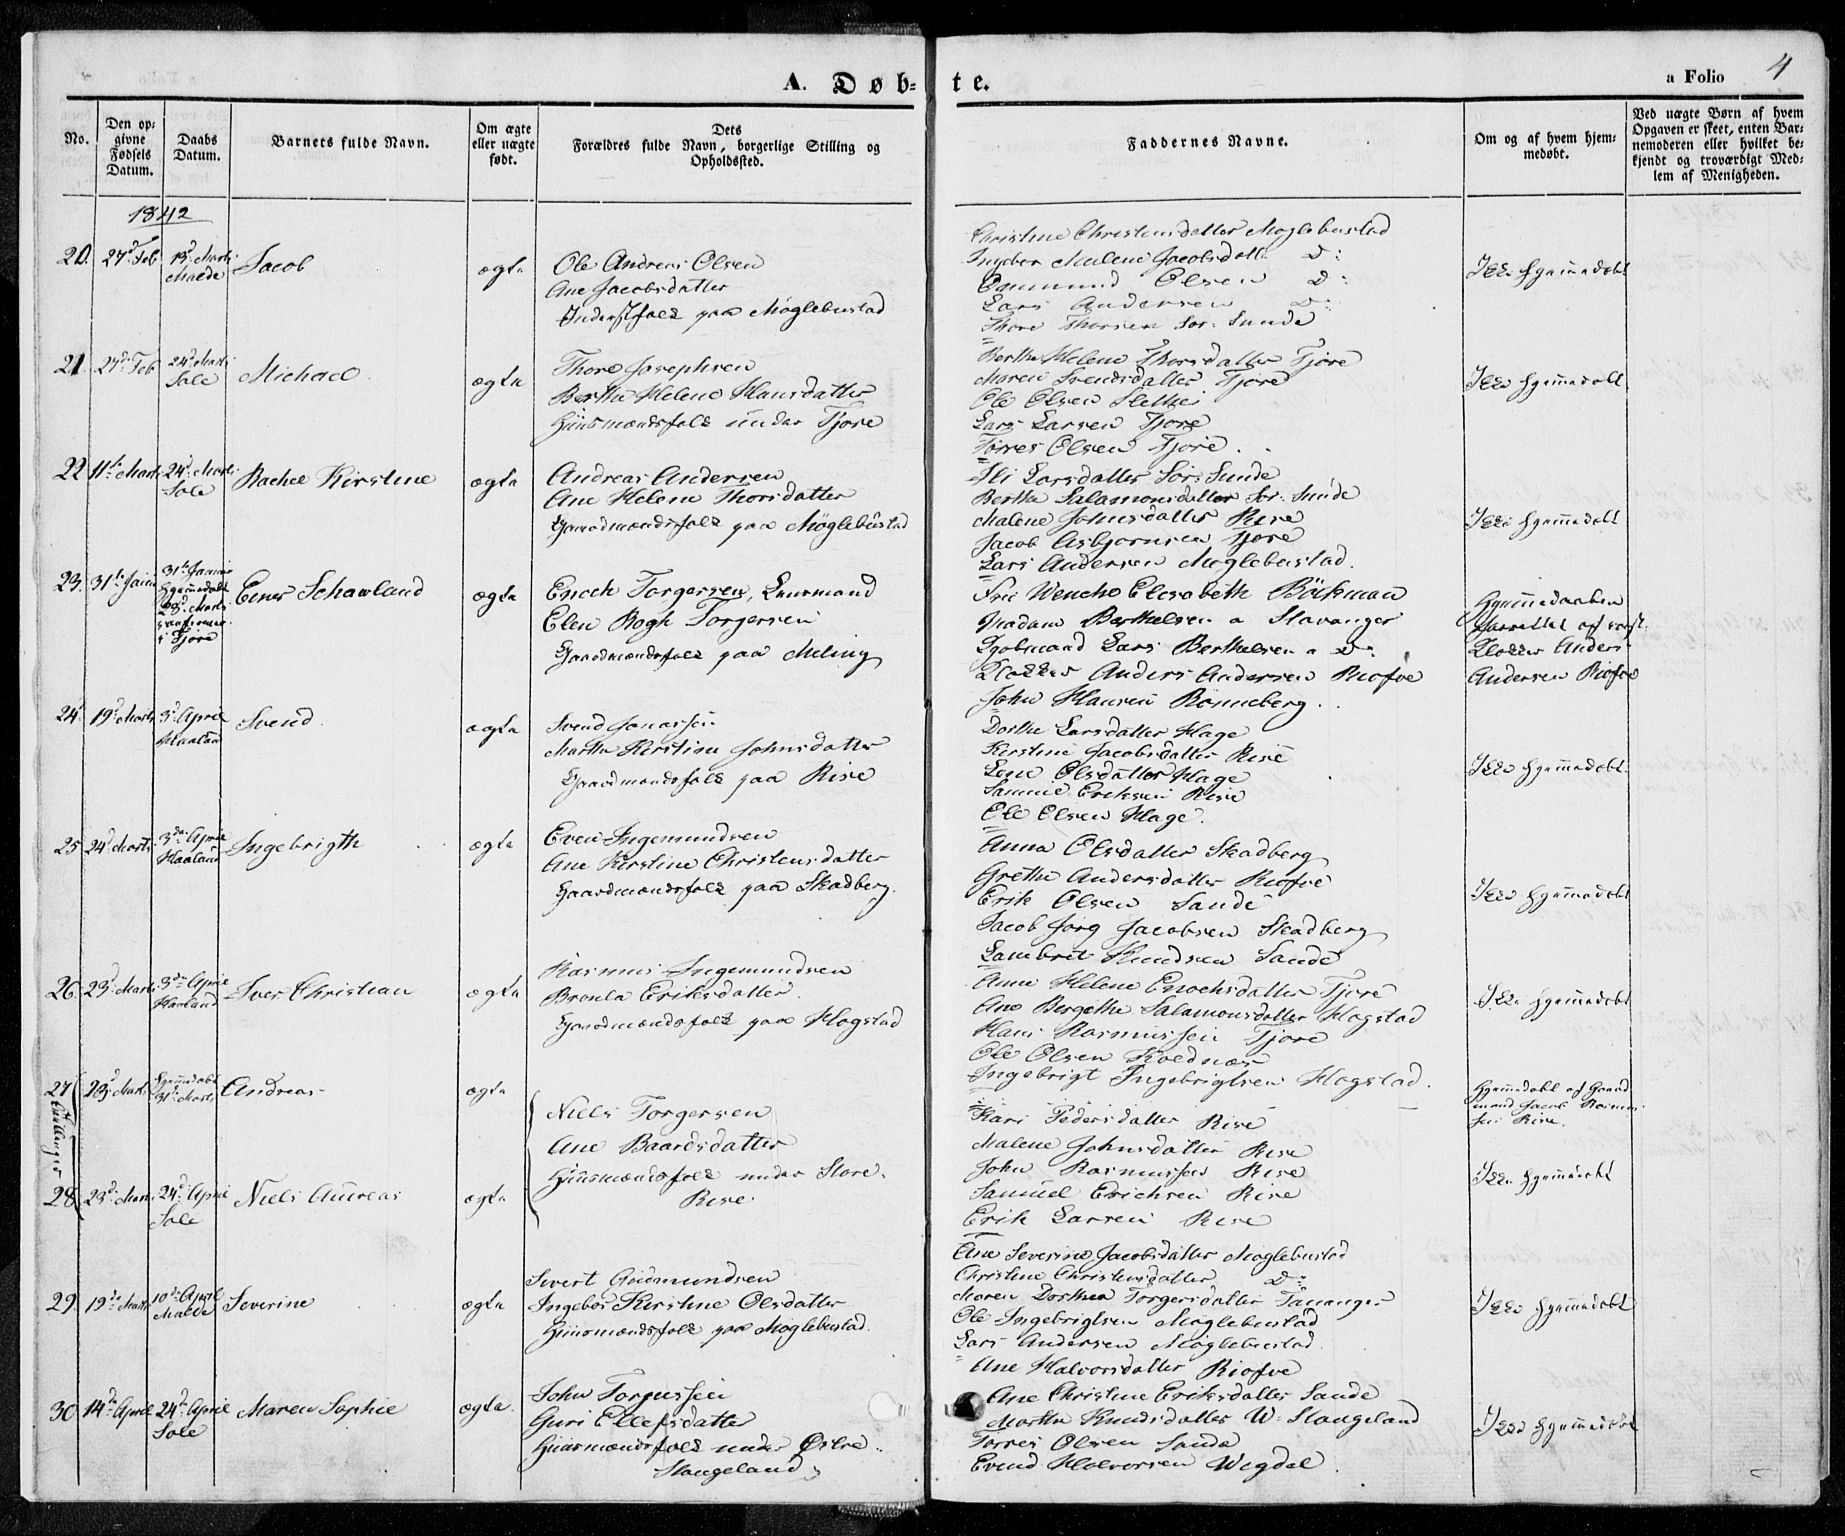 A. Døb-
te.
a Folio 4
No.
Den op-
givne
Fødsels
Datum.
Daabs
Datum.
Barnets fulde Navn.
Om ægte
eller uægte
født.
Dets
Forældres fulde Navn, borgerlige Stilling og
Opholdssted.
Faddernes Navne.
Om og af hvem hjem-
medøbt.
Ved uægte Børn af hvem
Opgaven er skeet, enten Bar-
nemoderen eller hvilket be-
kjendt og troværdigt Med-
lem af Menigheden.
1842
20. 27d Feb 13d Marti Malde Jacob ægte
Ole Andreas Olsen
Ane Jacobsdatter
Inderstfolk paa Møglebustad
Christine Christensdatter Møglebustad
Ingebor Malene Jacobsdatt: D:
Ommund Olsen D:
Lars Andersen D:
Thore Thorsen Sør: Sunde
Ikke hjemmedøbt
21. 27d Feb 24d Marti Sole Michael ægte
Thore Josephsen
Berthe Helene Hansdatter
Huusmandsfolk under Tjore
Berthe Helene Thorsdatter Tjore
Maren Svendsdatter Tjore
Ole Olsen Slethei
Lars Larsen Tjore
Torres Olsen Tjore
Ikke hjemmedøbt
22 11te Marti 24d Marti Sole Rachel Kirstine ægte
Andreas Andersen
Ane Helene Thorsdatter
Gaardmandsfolk paa Møglebustad
Eli Larsdatter Sør: Sunde
Berthe Salamonsdatter Sør: Sunde
Malene Johnsdatter Rise
Jacob Asbjornsen Tjore
Lars Andersen Møglebustad.
Ikke hjemmedøbt
23. 31te Janu 31te Janu hjemmedøbt 28d Marti confirmer. i Tjore Einer Schavland ægte
Enoch Torgersen, Lensmand
Elen Bogh Torgersen
Gaardmandsfolk paa Meling
Frue Wencho Elisabeth Böckman
Madam Berthelsen a Stavanger
Kjøbmand Lars Berthelsen a D:
Klokker Anders Andersen Riofve
John Hansen Rønneberg
Hjemmedaaben
forrettet af
Klokker Anders
Andersen Riofve
24 19d Marti 3d April Haaland Svend ægte
Svend Jonassen
Martha Kirstine Johnsdatter
Gaardmandsfolk paa Rise
Dorthe Larsdatter Hage
Kirstine Jacobsdatter Rise
Lene Olsdatter Hage
Samuel Eriksen Rise
Ole Olsen Hage.
Ikke hjemmedøbt
25 24d Marti 3de April Haaland Ingebrigth ægte
Even Ingemundsen
Ane Kirstine Christensdatter
Gaardmandsfolk paa Skadberg.
Anna Olsdatter Skadberg
Grethe Andersdatter Riofve
Erik Olsen Sande
Jacob Jørg Jacobsen Skadberg
Lambret Knudsen Sande
Ikke hjemmedøbt
26 23d Marti 3de April Haaland Iver Christian ægte
Rasmus Ingemundsen
Bronla Eriksdatter
Gaardmandsfolk paa Hogstad
Anne Helene Enochsdatter Tjore
Ane Bergithe Salamonsdatter Hogstad
Hans Rasmussen Tjore
Ole Olsen Koldnæs
Ingebrigt Ingebrigtsen Hogstad.
Ikke hjemmedøbt
27 23d Marti hjemmedøbt 31te Marti Andreas ægte
Tvillinger
Niels Torgersen
Ane Baardsdatter
Huusmandsfolk under Store
Rise
Kari Pedersdatter Rise
Malene Johnsdatter Rise
John Rasmussen Rise
Samuel Erichsen Rise
Erik Larsen Rise
Hjemmedøbt af Gaard
mand Jacob Rasmus
sen Rise.
28 23d Marti 24d April Sole Niels Andreas ægte
Ikke hjemmedøbt
29 19de Marti 10de April Malde Severine ægte
Sivert Gudmundsen
Ingebor Kirstine Olsdatter
Huusmandsfolk paa Møglebustad.
Ane Severine Jacobsdatter Møglebustad
Christine Christensdatter D:
Maren Dorthea Torgersdatter Tananger
Ole Ingebrigtsen Møglebustad
Lars Andersen Møglebustad.
Ikke hjemmedøbt
30 14de April 24d April Sole Maren Sophie ægte
John Torgussen
Guri Ellefsdatter
Huusmandsfolk under Østre
Stangeland
Ane Halvorsdatter Riofve
Ane Christine Eriksdatter Sande
Marthe Knudsdatter W: Stangeland
Torres Olsen Sande
Evend Halvorsen Wigdel
Ikke hjemmedøbt